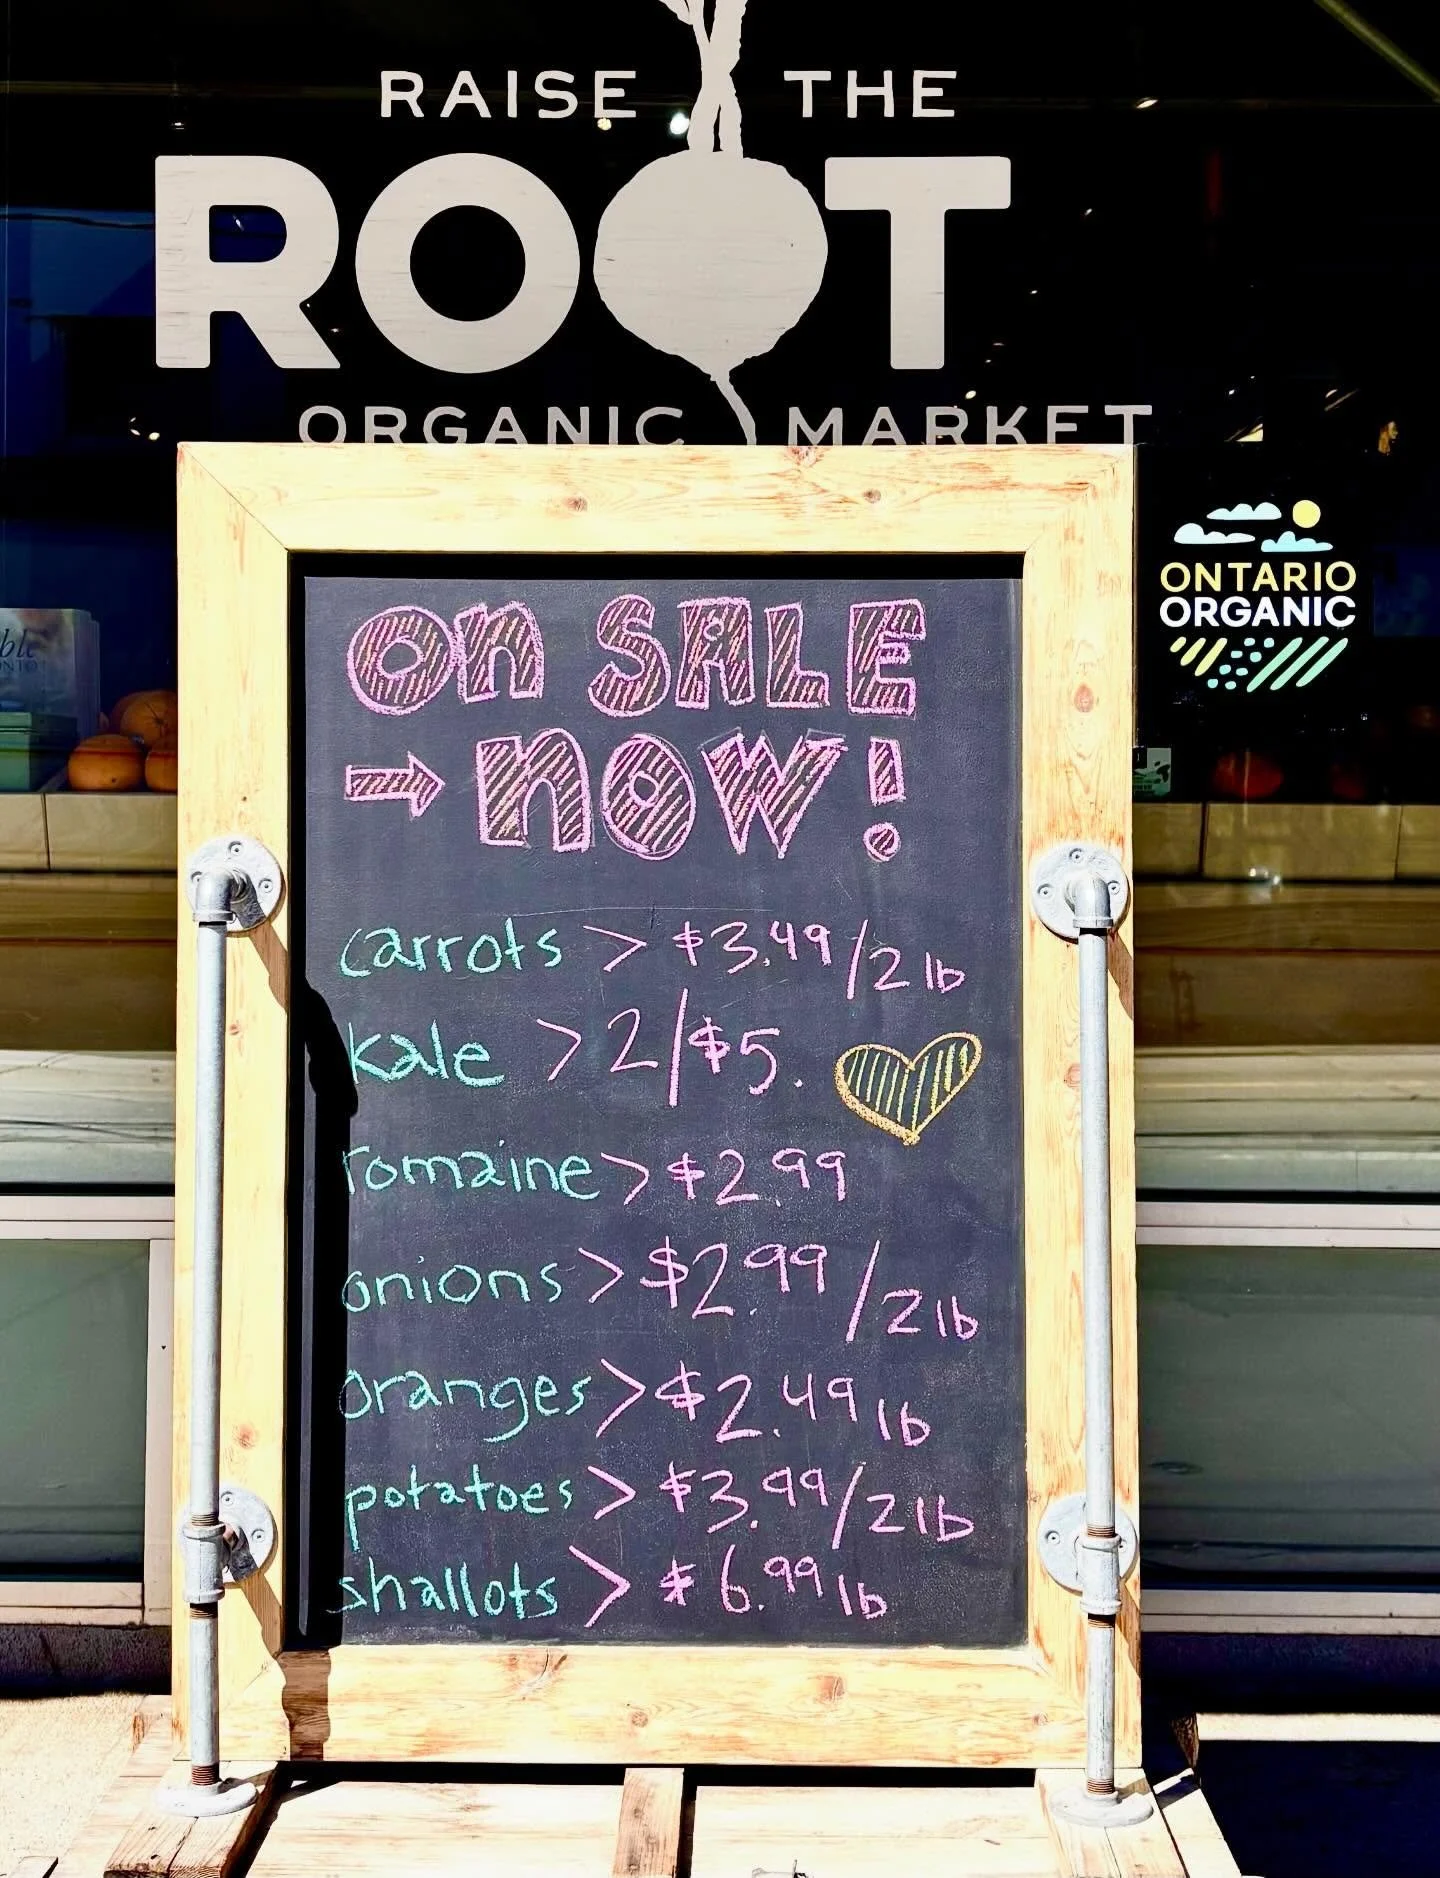 RAISE THE
ROOT
ORGANIC MARKET
ONTARIO
ORGANIC
On SALE
→ nOW!
carrots > $3.49/2 lb
kale > 2/$5.
romaine > $2.99
onions > $2.99/2 lb
oranges > $2.49 lb
potatoes > $3.99/2 lb
shallots > $6.99 lb